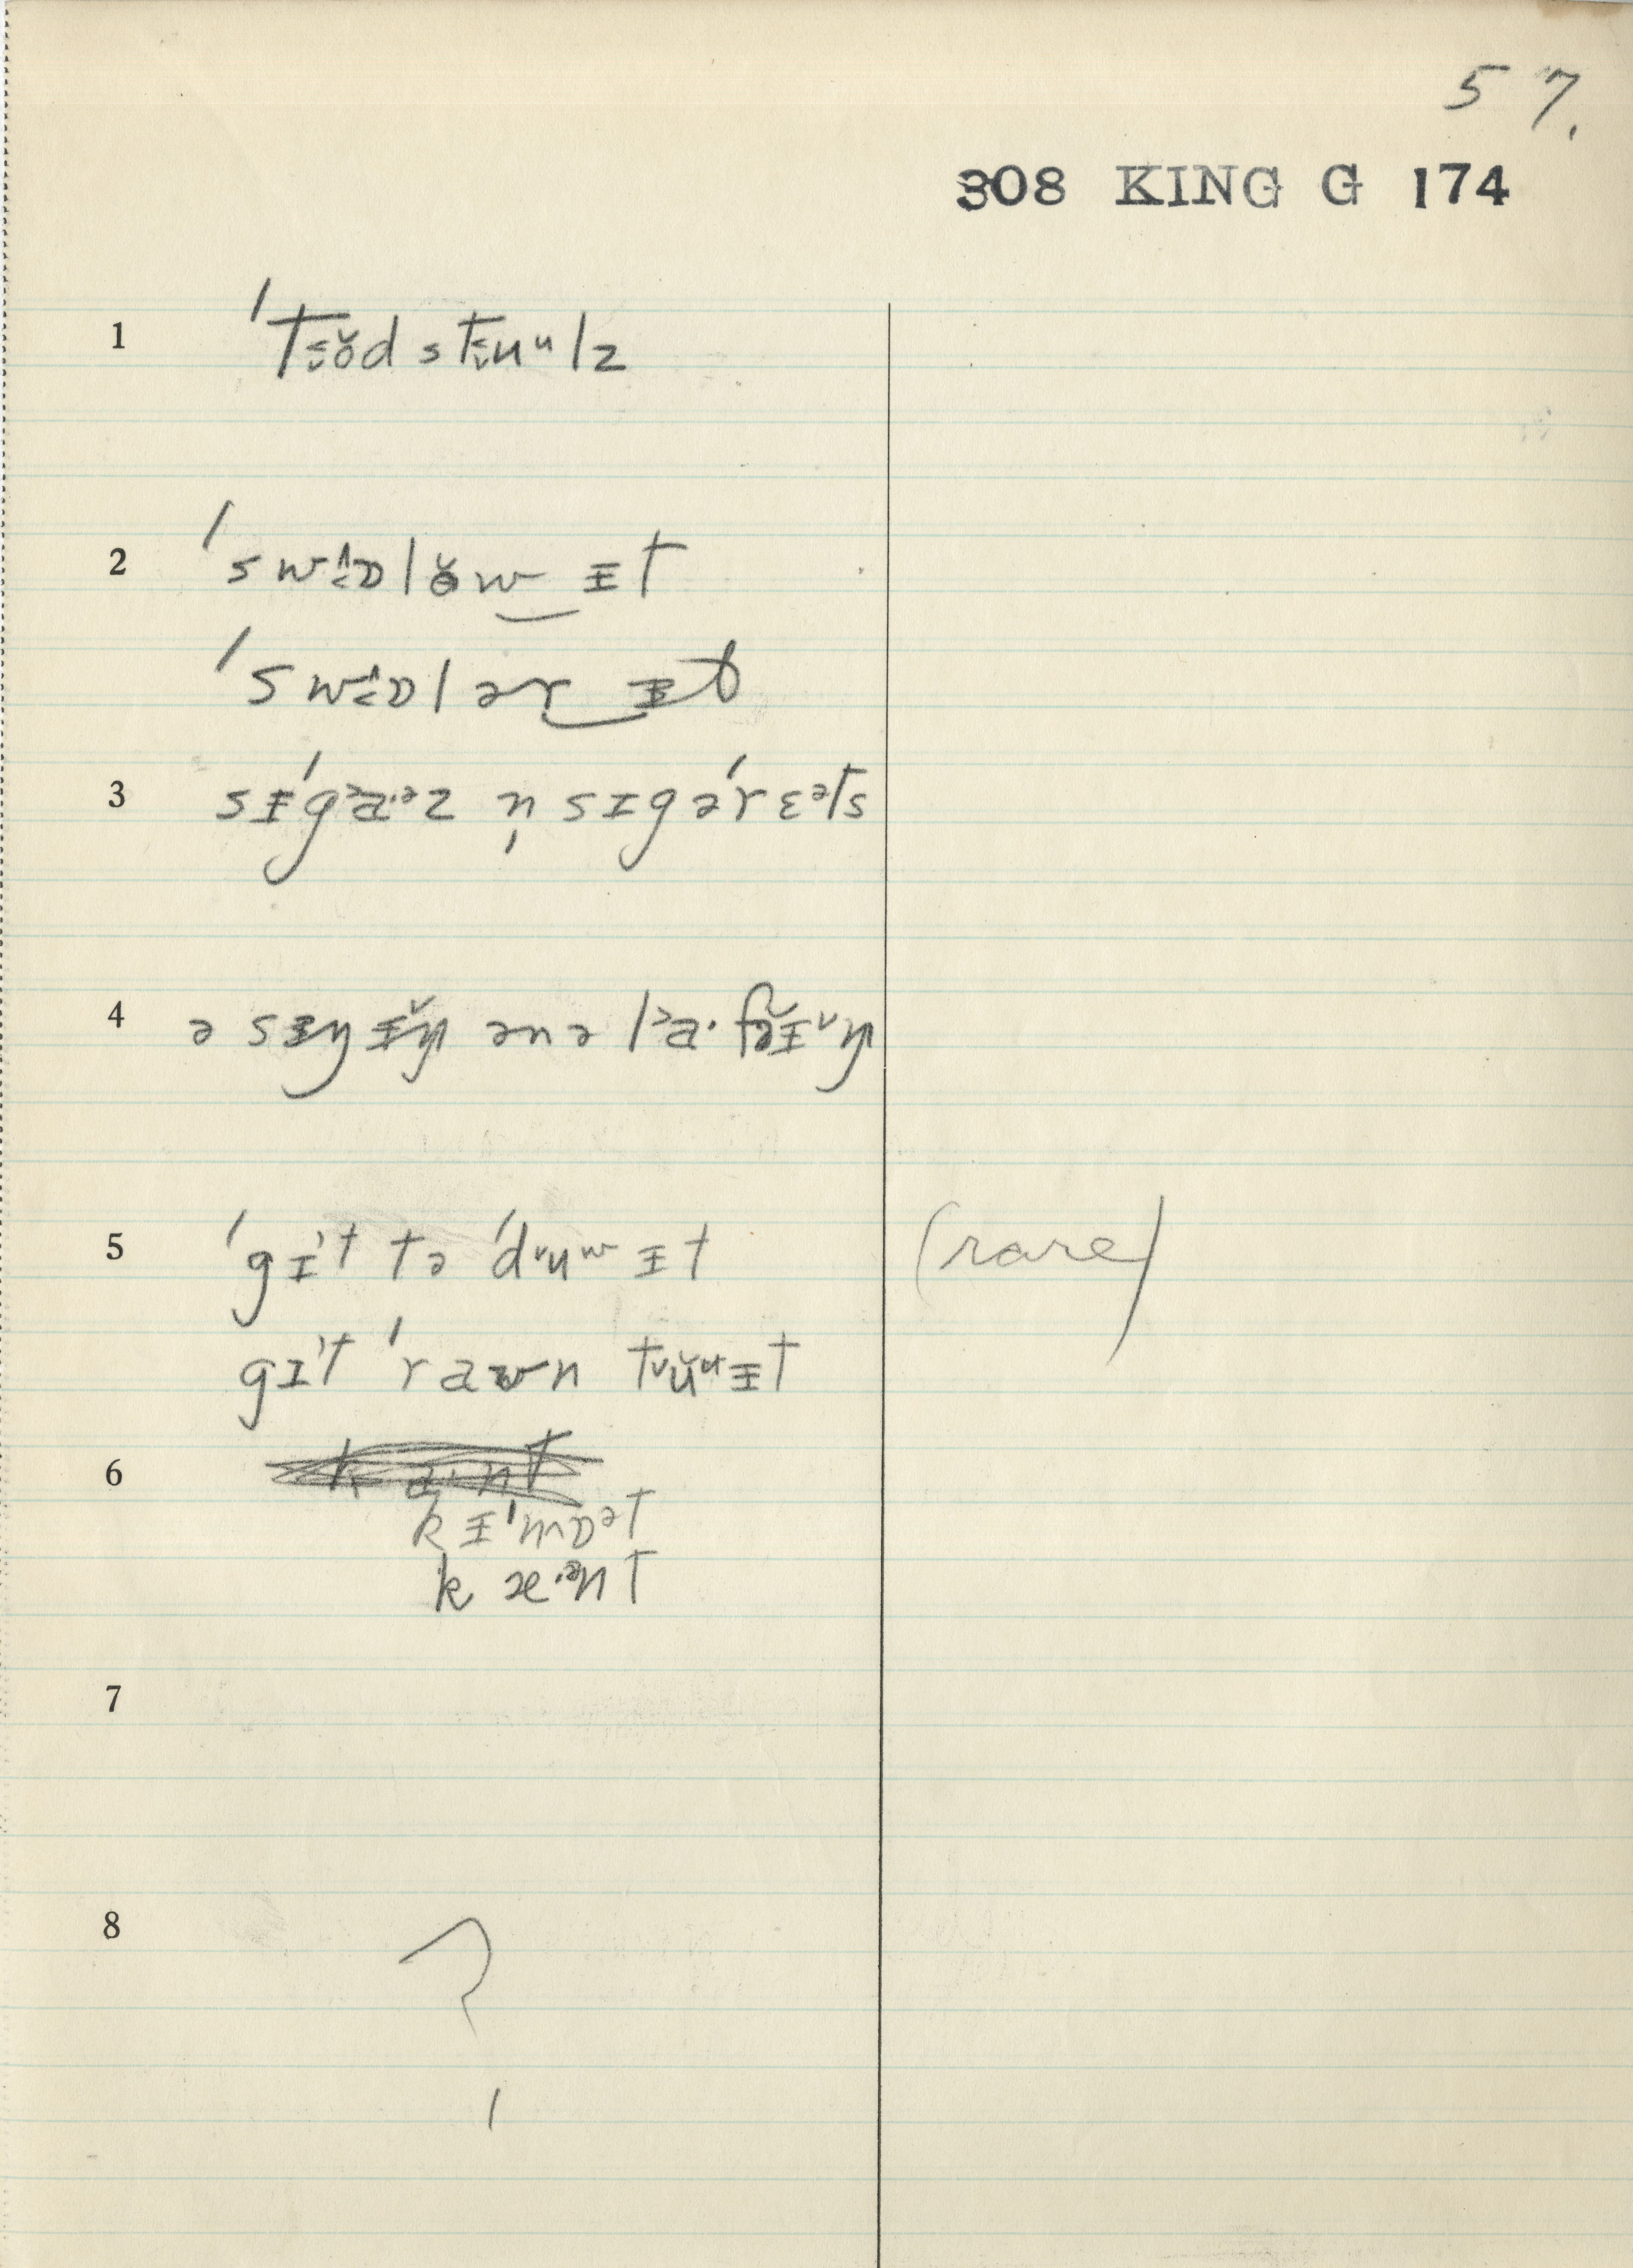 57.
308 KING G 174
1 ˈtɛŏd stɛuᵘlz
2 ˈswɒlŏw‿ɪt
ˈswɒlər‿ɪt
3 sɪˈgaːᵊz n̩ sɪgəˈrɛᵊts
4 ə sɪŋɪ̆ŋ ənə laˑfɪ̆ŋ
5 ˈgɪt tə ˈduʷ ɪt (rare)
gɪt ˈrawn tŭᵘɪt
6 kɪˈmɒᵊt
kæˑᵊnt
7
8 ?